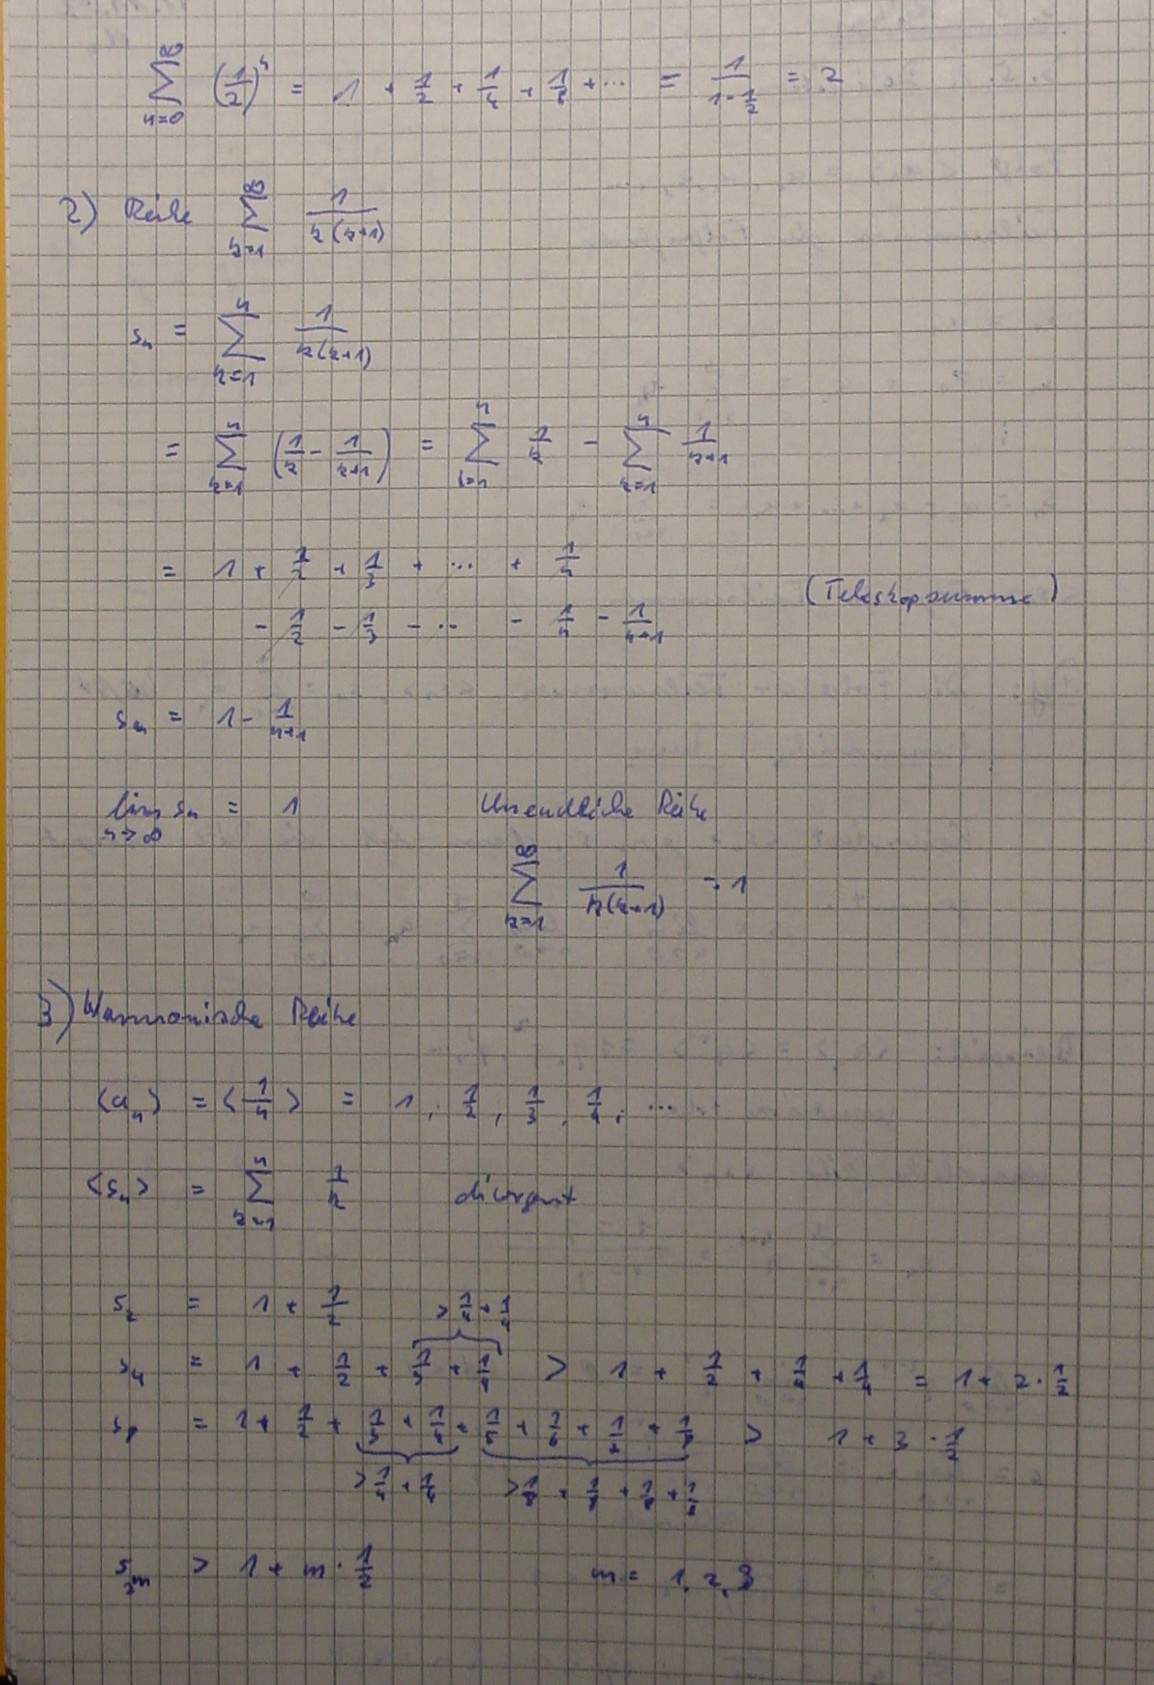 ∑_{n=0}^{∞} (1/2)^n = 1 + 1/2 + 1/4 + 1/8 + ... = 1/(1-1/2) = 2
2) Reihe ∑_{k=1}^{∞} 1/(k(k+1))
s_n = ∑_{k=1}^{n} 1/(k(k+1))
= ∑_{k=1}^{n} (1/k - 1/(k+1)) = ∑_{k=1}^{n} 1/k - ∑_{k=1}^{n} 1/(k+1)
= 1 + 1/2 + 1/3 + ... + 1/n
(Teleskopsumme)
- 1/2 - 1/3 - ... - 1/n - 1/(n+1)
s_n = 1 - 1/(n+1)
lim_{n→∞} s_n = 1 Unendliche Reihe
∑_{k=1}^{∞} 1/(k(k+1)) = 1
3) Harmonische Reihe
⟨a_n⟩ = ⟨1/n⟩ = 1, 1/2, 1/3, 1/4, ...
⟨s_n⟩ = ∑_{k=1}^{n} 1/k divergent
s_2 = 1 + 1/2 > 1/4 + 1/4
s_4 = 1 + 1/2 + 1/3 + 1/4 > 1 + 1/2 + 1/4 + 1/4 = 1 + 2 · 1/2
s_8 = 1 + 1/2 + 1/3 + 1/4 + 1/5 + 1/6 + 1/7 + 1/8 > 1 + 3 · 1/2
> 1/4 + 1/4 > 1/8 + 1/8 + 1/8 + 1/8
s_{2^m} > 1 + m · 1/2 m = 1, 2, 3